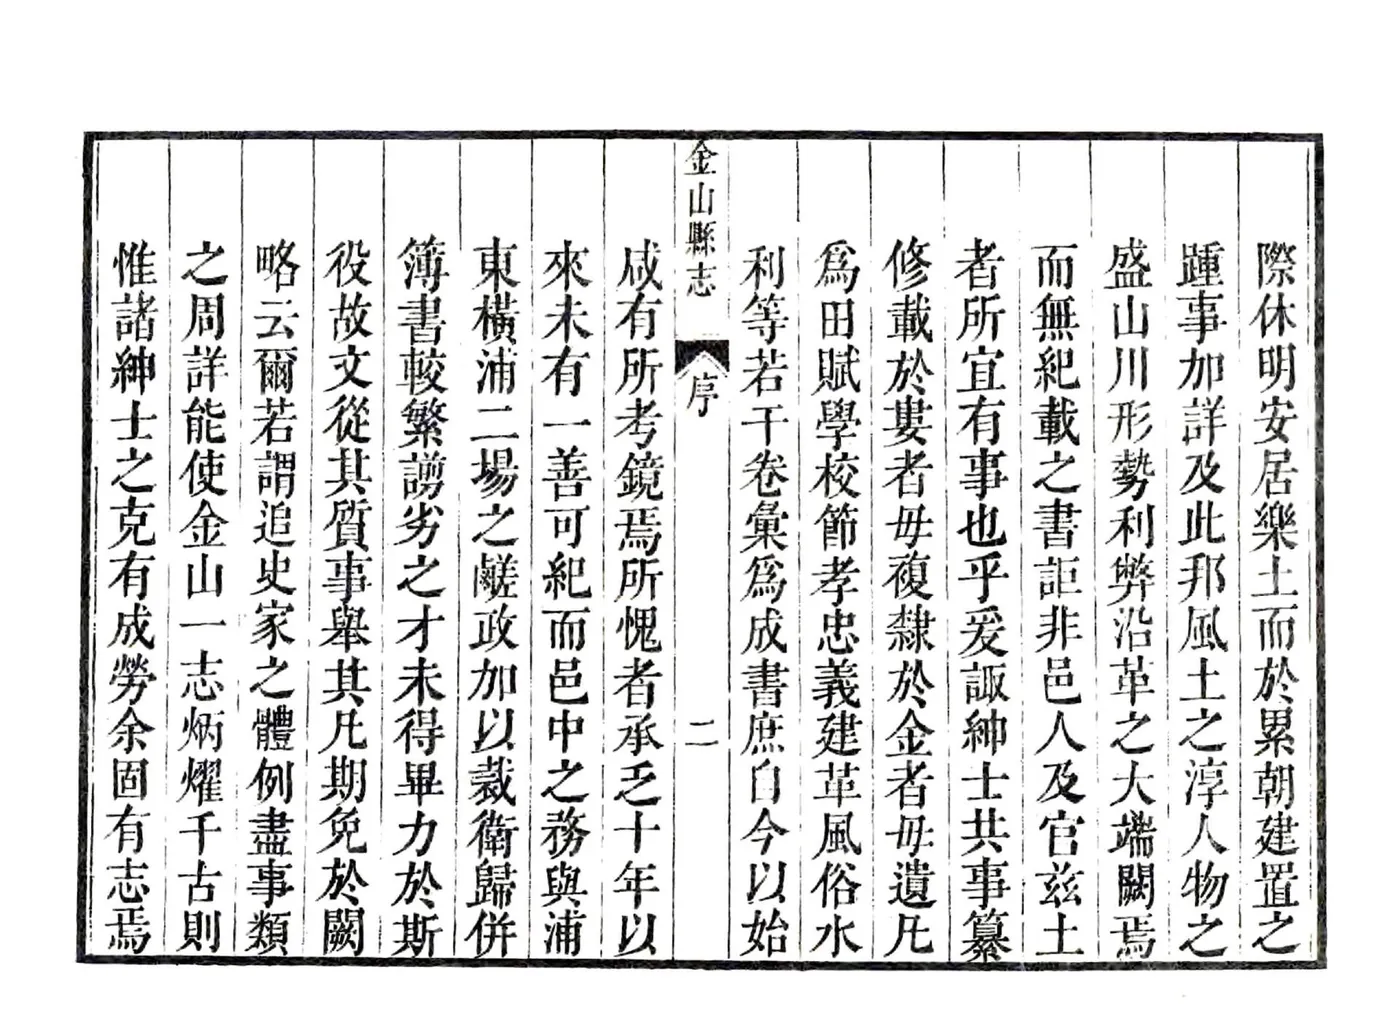 際休明安居樂土而於累朝建置之
踵事加詳及此邦風土之淳人物之
盛山川形勢利弊沿革之大端闕焉
而無紀載之書詎非邑人及官茲土
者所宜有事也乎爰諏紳士共事纂
修載於婁者毋複隸於金者毋遺凡
爲田賦學校節孝忠義建革風俗水
利等若干卷彙爲成書庶自今以始
金山縣志
序
二
咸有所考鏡焉所愧者承乏十年以
來未有一善可紀而邑中之務與浦
東橫浦二場之鹺政加以裁衛歸併
簿書較繁謭劣之才未得畢力於斯
役故文從其質事舉其凡期免於闕
略云爾若謂追史家之體例盡事類
之周詳能使金山一志炳燿千古則
惟諸紳士之克有成勞余固有志焉